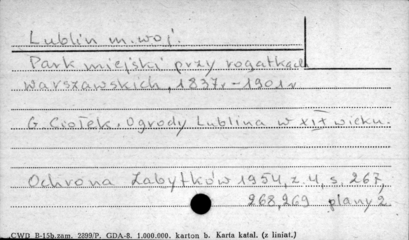 Lublin m. woj.
Park miejski przy rogatkach
warszawskich, 1837r. - 1901r
G. Ciołek. Ogrody Lublina w XIX wieku.
Ochrona Zabytków 1954, z. 4, s. 267,
268, 269 plany 2.
CWD B-15b.zam. 2899/P. GDA-8. 1.000.000. karton b. Karta katal. (z liniat.)